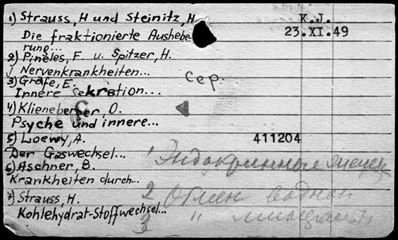 1) Strauss, H und Steinitz, H
K.J.
Die fraktionierte Aushebe
23.XI.49
rung...
2) Pineles, F u. Spitzer, H.
Nervenkrankheiten...
сер.
3) Grafe, E.
Innere Sekretion...
4) Klieneberger O.
Psyche und innere...
5) Loewy, A.
411204
Der Gaswechsel...
1 Эндокринные
6) Aschner, B.
Krankheiten durch...
2 Обмен водный
7) Strauss, H.
Kohlehydrat-Stoffwechsel...
3 "